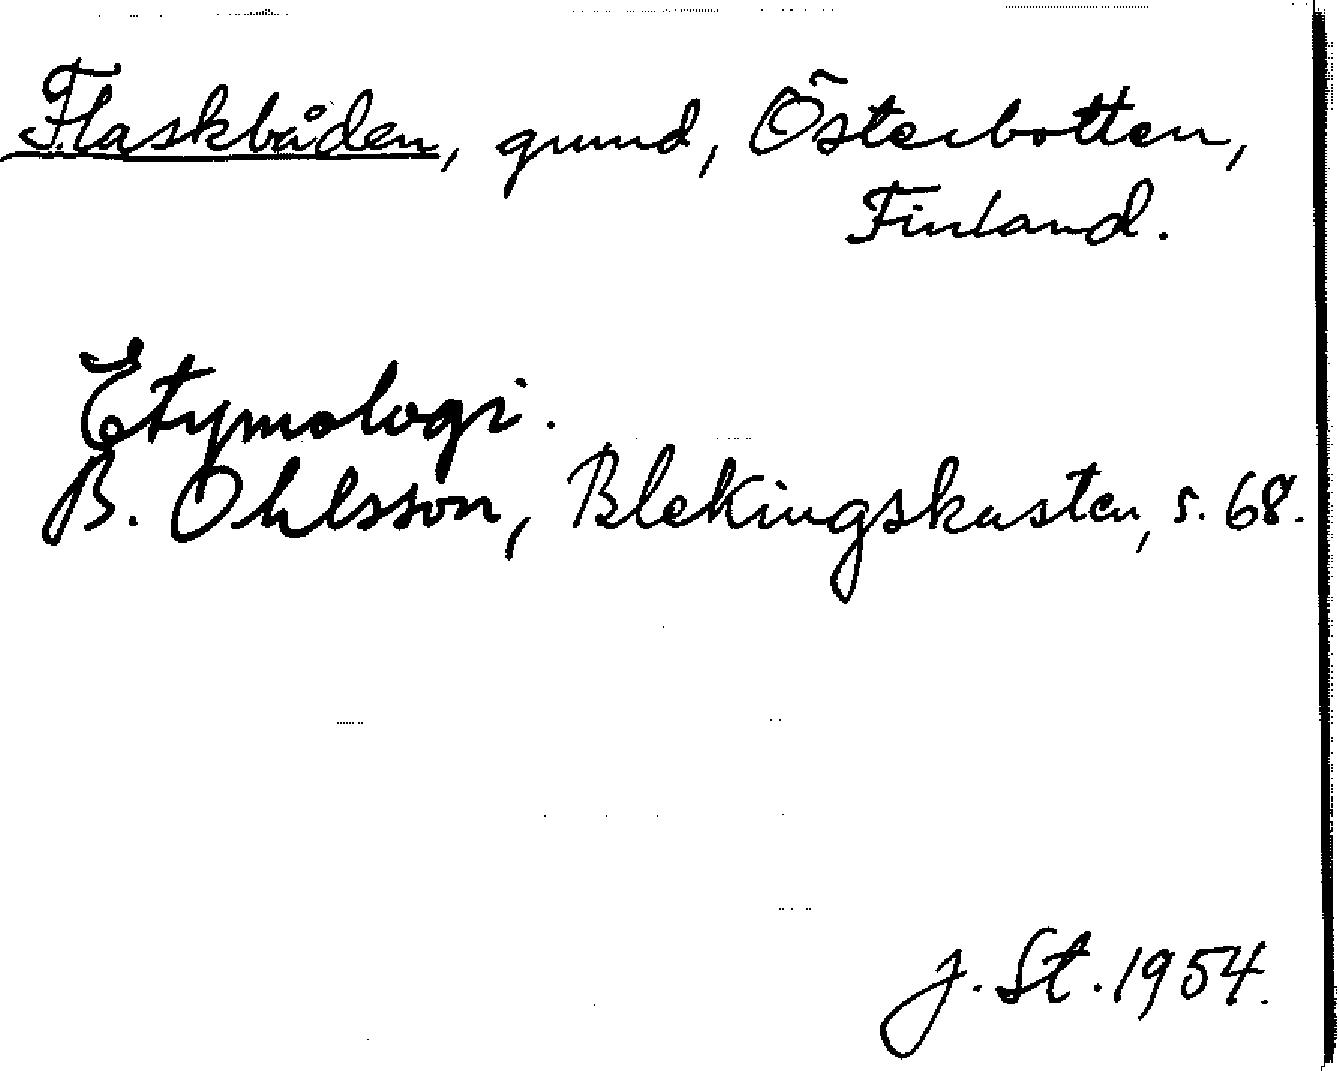 Flaskbåden, grund, Österbotten,
Finland.
Etymologi.
B. Ohlsson, Blekingskusten, s. 68.
J. St. 1954.